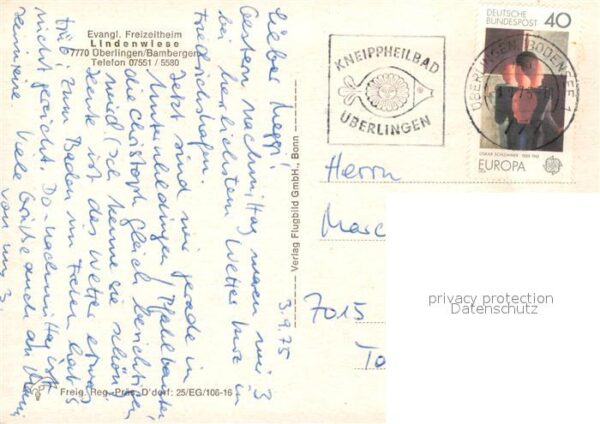 Evangl. Freizeitheim
Lindenwiese
7770 Überlingen/Bambergen
Telefon 07551 / 5580
3.9.75
Lieber
Gestern nachmittag waren wir 3
bei herrlichstem Wetter kurz in
Friedrichshafen.
Jetzt sind wir gerade in
Unteruhldingen, Pfahlbauten
die Christoph gleich besichtigen
wird (ich kenne sie schon).
Heute ist das Wetter etwas
trüb, zum Baden im Freien hat's
nicht gereicht. Do-nachmittag ist
Viele Grüße auch an
von uns 3
Freig. Reg.-Präs. D'dorf: 25/EG/106-16
Verlag Flugbild GmbH., Bonn
KNEIPPHEILBAD
ÜBERLINGEN
ÜBERLINGEN, BODENSEE 1
DEUTSCHE
BUNDESPOST
40
OSKAR SCHLEMMER 1888-1943
EUROPA
Herrn
Marc
7015
privacy protection
Datenschutz